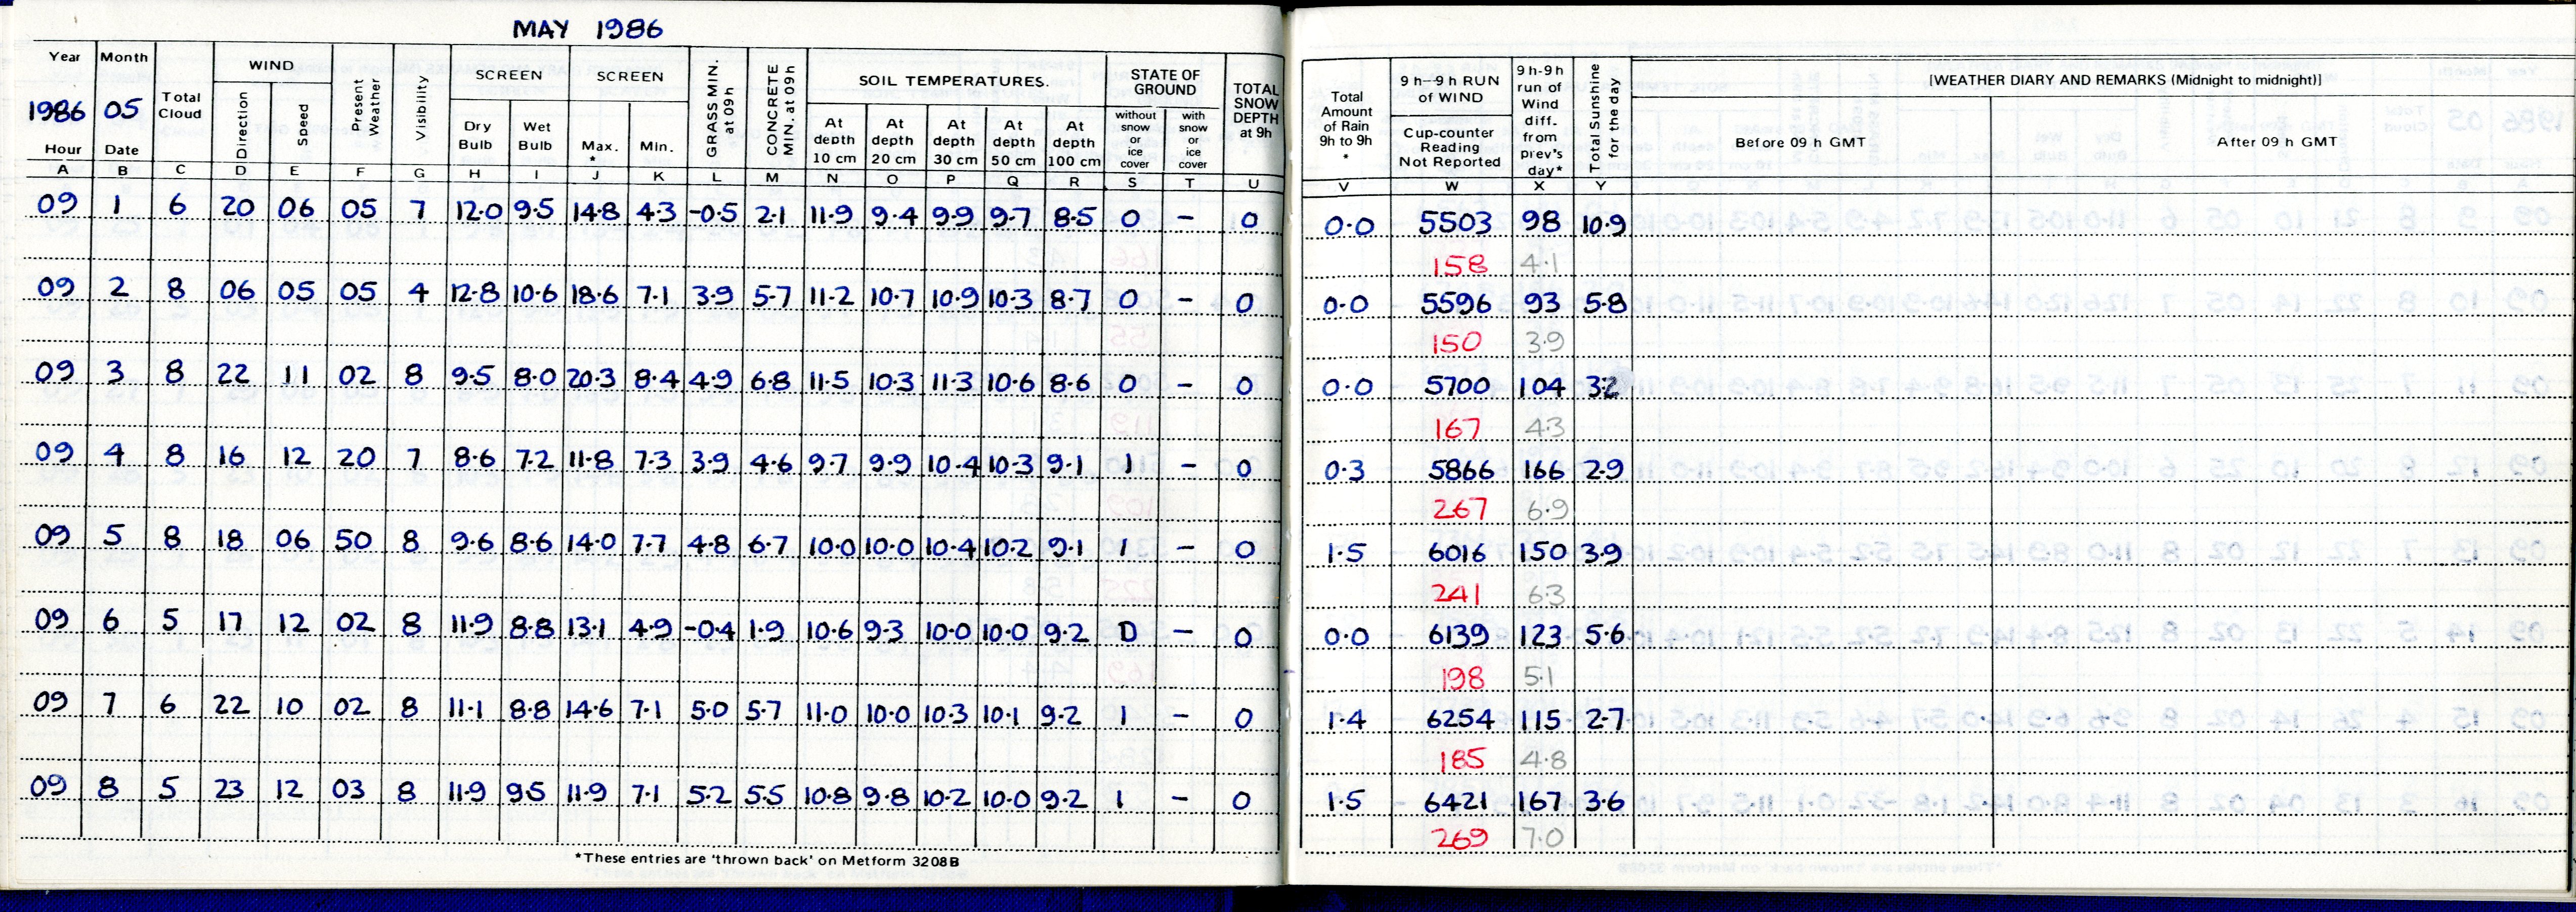 MAY 1986
Year Month Total Cloud WIND Present Weather Visibility SCREEN SCREEN GRASS MIN. at 09h CONCRETE MIN. at 09h SOIL TEMPERATURES. STATE OF GROUND TOTAL SNOW DEPTH at 9h
1986 05 Direction Speed Dry Bulb Wet Bulb Max. * Min. At depth 10 cm At depth 20 cm At depth 30 cm At depth 50 cm At depth 100 cm without snow or ice cover with snow or ice cover
Hour Date
A B C D E F G H I J K L M N O P Q R S T U
09 1 6 20 06 05 7 12.0 9.5 14.8 4.3 -0.5 2.1 11.9 9.4 9.9 9.7 8.5 0 - 0
09 2 8 06 05 05 4 12.8 10.6 18.6 7.1 3.9 5.7 11.2 10.7 10.9 10.3 8.7 0 - 0
09 3 8 22 11 02 8 9.5 8.0 20.3 8.4 4.9 6.8 11.5 10.3 11.3 10.6 8.6 0 - 0
09 4 8 16 12 20 7 8.6 7.2 11.8 7.3 3.9 4.6 9.7 9.9 10.4 10.3 9.1 1 - 0
09 5 8 18 06 50 8 9.6 8.6 14.0 7.7 4.8 6.7 10.0 10.0 10.4 10.2 9.1 1 - 0
09 6 5 17 12 02 8 11.9 8.8 13.1 4.9 -0.4 1.9 10.6 9.3 10.0 10.0 9.2 0 - 0
09 7 6 22 10 02 8 11.1 8.8 14.6 7.1 5.0 5.7 11.0 10.0 10.3 10.1 9.2 1 - 0
09 8 5 23 12 03 8 11.9 9.5 11.9 7.1 5.2 5.5 10.8 9.8 10.2 10.0 9.2 1 - 0
*These entries are 'thrown back' on Metform 3208B
Total Amount of Rain 9h to 9h * 9h-9h RUN of WIND Cup-counter Reading Not Reported 9h-9h run of Wind diff. from prev's day* Total Sunshine for the day [WEATHER DIARY AND REMARKS (Midnight to midnight)]
Before 09 h GMT After 09 h GMT
V W X Y
0.0 5503 98 10.9
158 4.1
0.0 5596 93 5.8
150 3.9
0.0 5700 104 3.2
167 4.3
0.3 5866 166 2.9
267 6.9
1.5 6016 150 3.9
241 6.3
0.0 6139 123 5.6
198 5.1
1.4 6254 115 2.7
185 4.8
1.5 6421 167 3.6
269 7.0